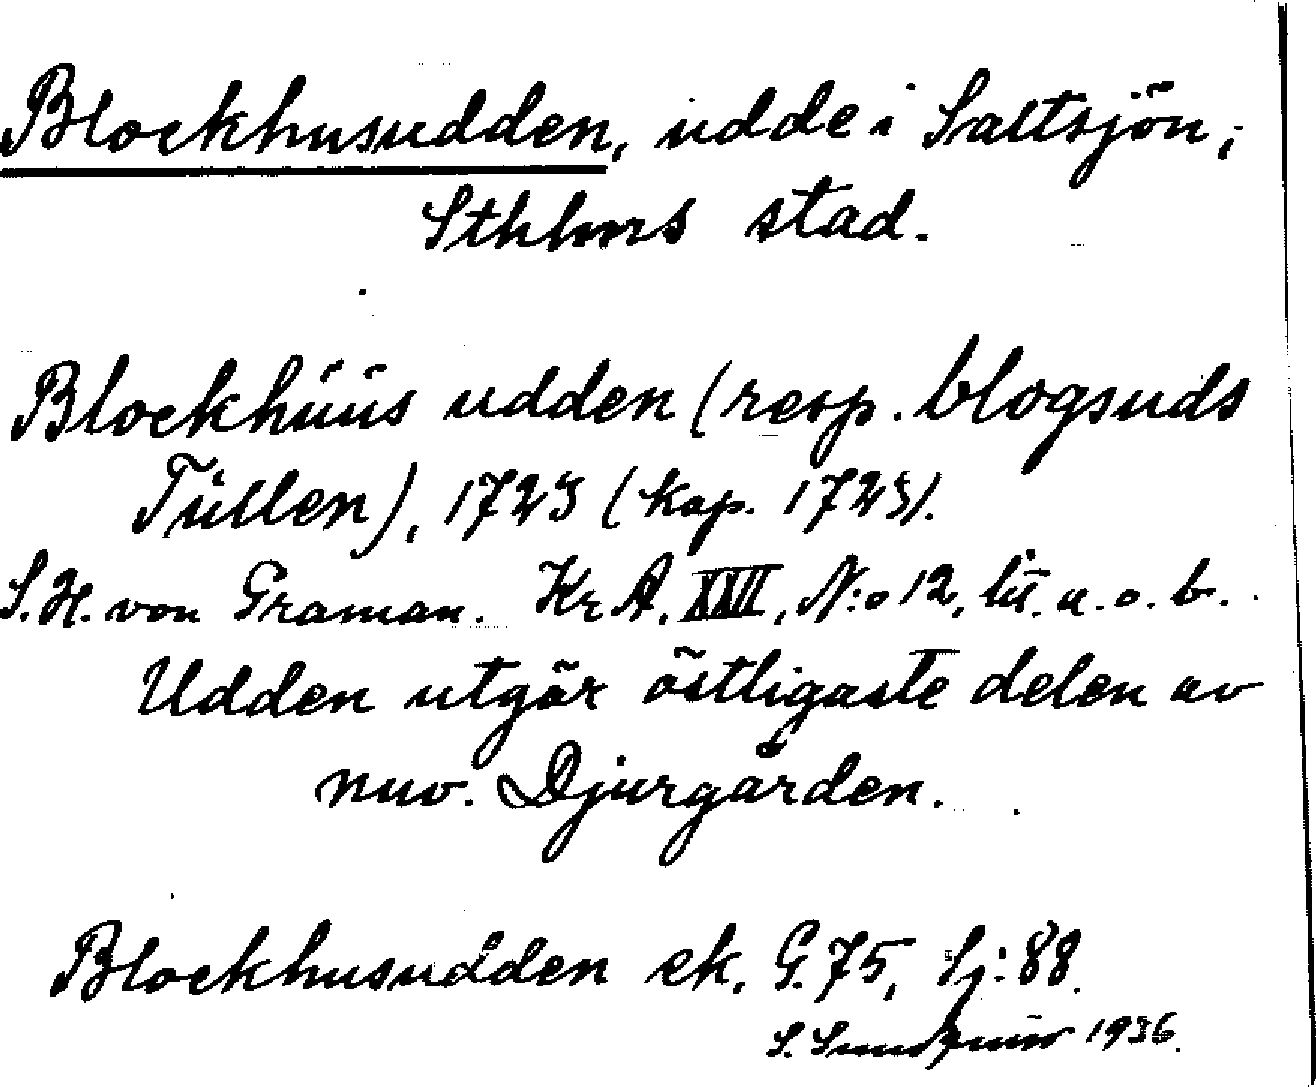 Blockhusudden, udde i Saltsjön,
Sthlms stad.
Blockhúús udden (resp. blogsuds
Tullen), 1723 (kop. 1723).
S.H. von Graman. KrA. XXII, N:o 12, lit. a. o. b.
Udden utgör östligaste delen av
nuv. Djurgården.
Blockhusudden ek. G. 75, Sj: 88.
S. 1936.